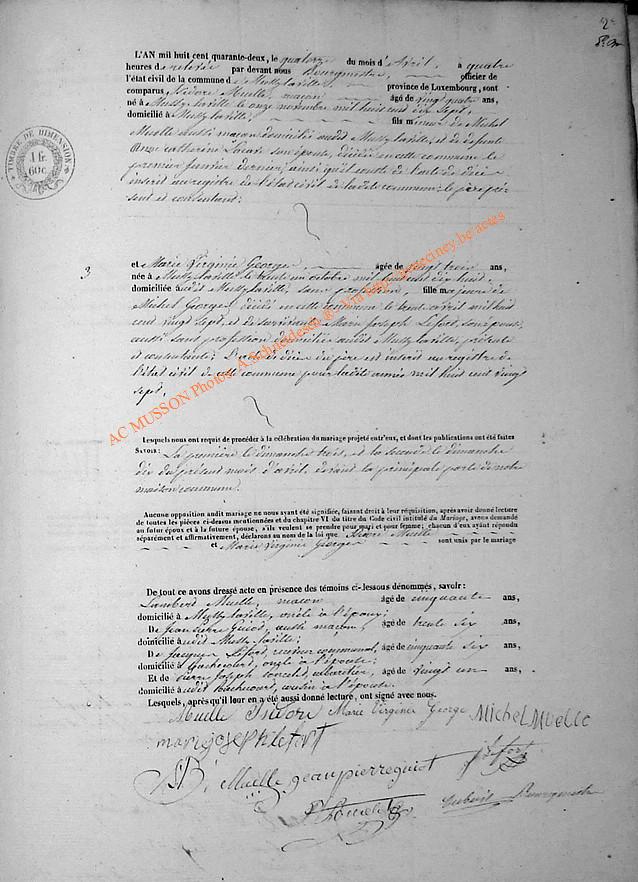 2
L'AN mil huit cent quarante-deux, le quatorze du mois d'Avril, à quatre
heures de relevée par devant nous Bourgmestre, officier de
l'état civil de la commune de Mussy laville, province de Luxembourg, sont
comparus, Isidore Muelle, maçon âgé de vingt quatre ans,
né à Mussy laville le onze novembre mil huit cent dix sept,
domicilié à Mussy laville; fils mineur de Michel
Muelle aussi maçon domicilié audit Mussy laville, et de défunte
Anne catherine son épouse, décédée en cette commune le
premier janvier dernier, ainsi qu'il conste de l'acte de décès
inscrit au registre de l'état civil de ladite commune: le père pré-
sent et consentant:
3
et Marie Virginie George, âgée de vingt trois ans,
née à Mussy laville le trente un octobre mil huit cent dix huit,
domiciliée audit Mussy laville, sans profession, fille majeure de
Michel George, décédé en cette commune le avril mil huit
cent vingt sept, et de survivante Marie Joseph Lefort, son épouse,
aussi sans profession domiciliée audit Mussy laville, présente
et consentante; L'acte de décès du père est inscrit au registre de
l'état civil de cette commune pour ladite année mil huit cent vingt
sept.
Lesquels nous ont requis de procéder à la célébration du mariage projeté entr'eux, et dont les publications ont été faites
SAVOIR: La première le dimanche trois, et la seconde le dimanche
dix du présent mois d'avril, devant la principale porte de notre
maison commune.
Aucune opposition audit mariage ne nous ayant été signifiée, faisant droit à leur réquisition, après avoir donné lecture
de toutes les pièces ci-dessus mentionnées et du chapitre VI du titre du Code civil intitulé du Mariage, avons demandé
au futur époux et à la future épouse, s'ils veulent se prendre pour mari et pour femme; chacun d'eux ayant répondu
séparément et affirmativement, déclarons au nom de la loi que Isidore Muelle
et Marie Virginie George sont unis par le mariage
De tout ce avons dressé acte en présence des témoins ci-dessous dénommés, savoir:
Lambert Muelle, maçon âgé de cinquante ans,
domicilié à Mussy laville, oncle à l'époux;
De Jean pierre Guiot, aussi maçon, âgé de trente six ans,
domicilié audit Mussy laville;
De Jacques Lefort receveur communal, âgé de cinquante six ans,
domicilié à Bachecourt, oncle à l'épouse;
Et de pierre Joseph âgé de vingt un ans,
domicilié audit Bachecourt, cousin à l'épouse.
Lesquels, après qu'il leur en a été aussi donné lecture, ont signé avec nous.
Muelle Isidore Marie Virginie George Michel Muelle
marie joseph lefort
Muelle jean pierre guiot Lefort
Bourgmestre
TIMBRE DE DIMENSION
1 fr.
60c.
AC MUSSON Photos A Schneidesch ® Via http://geneciney.be actes